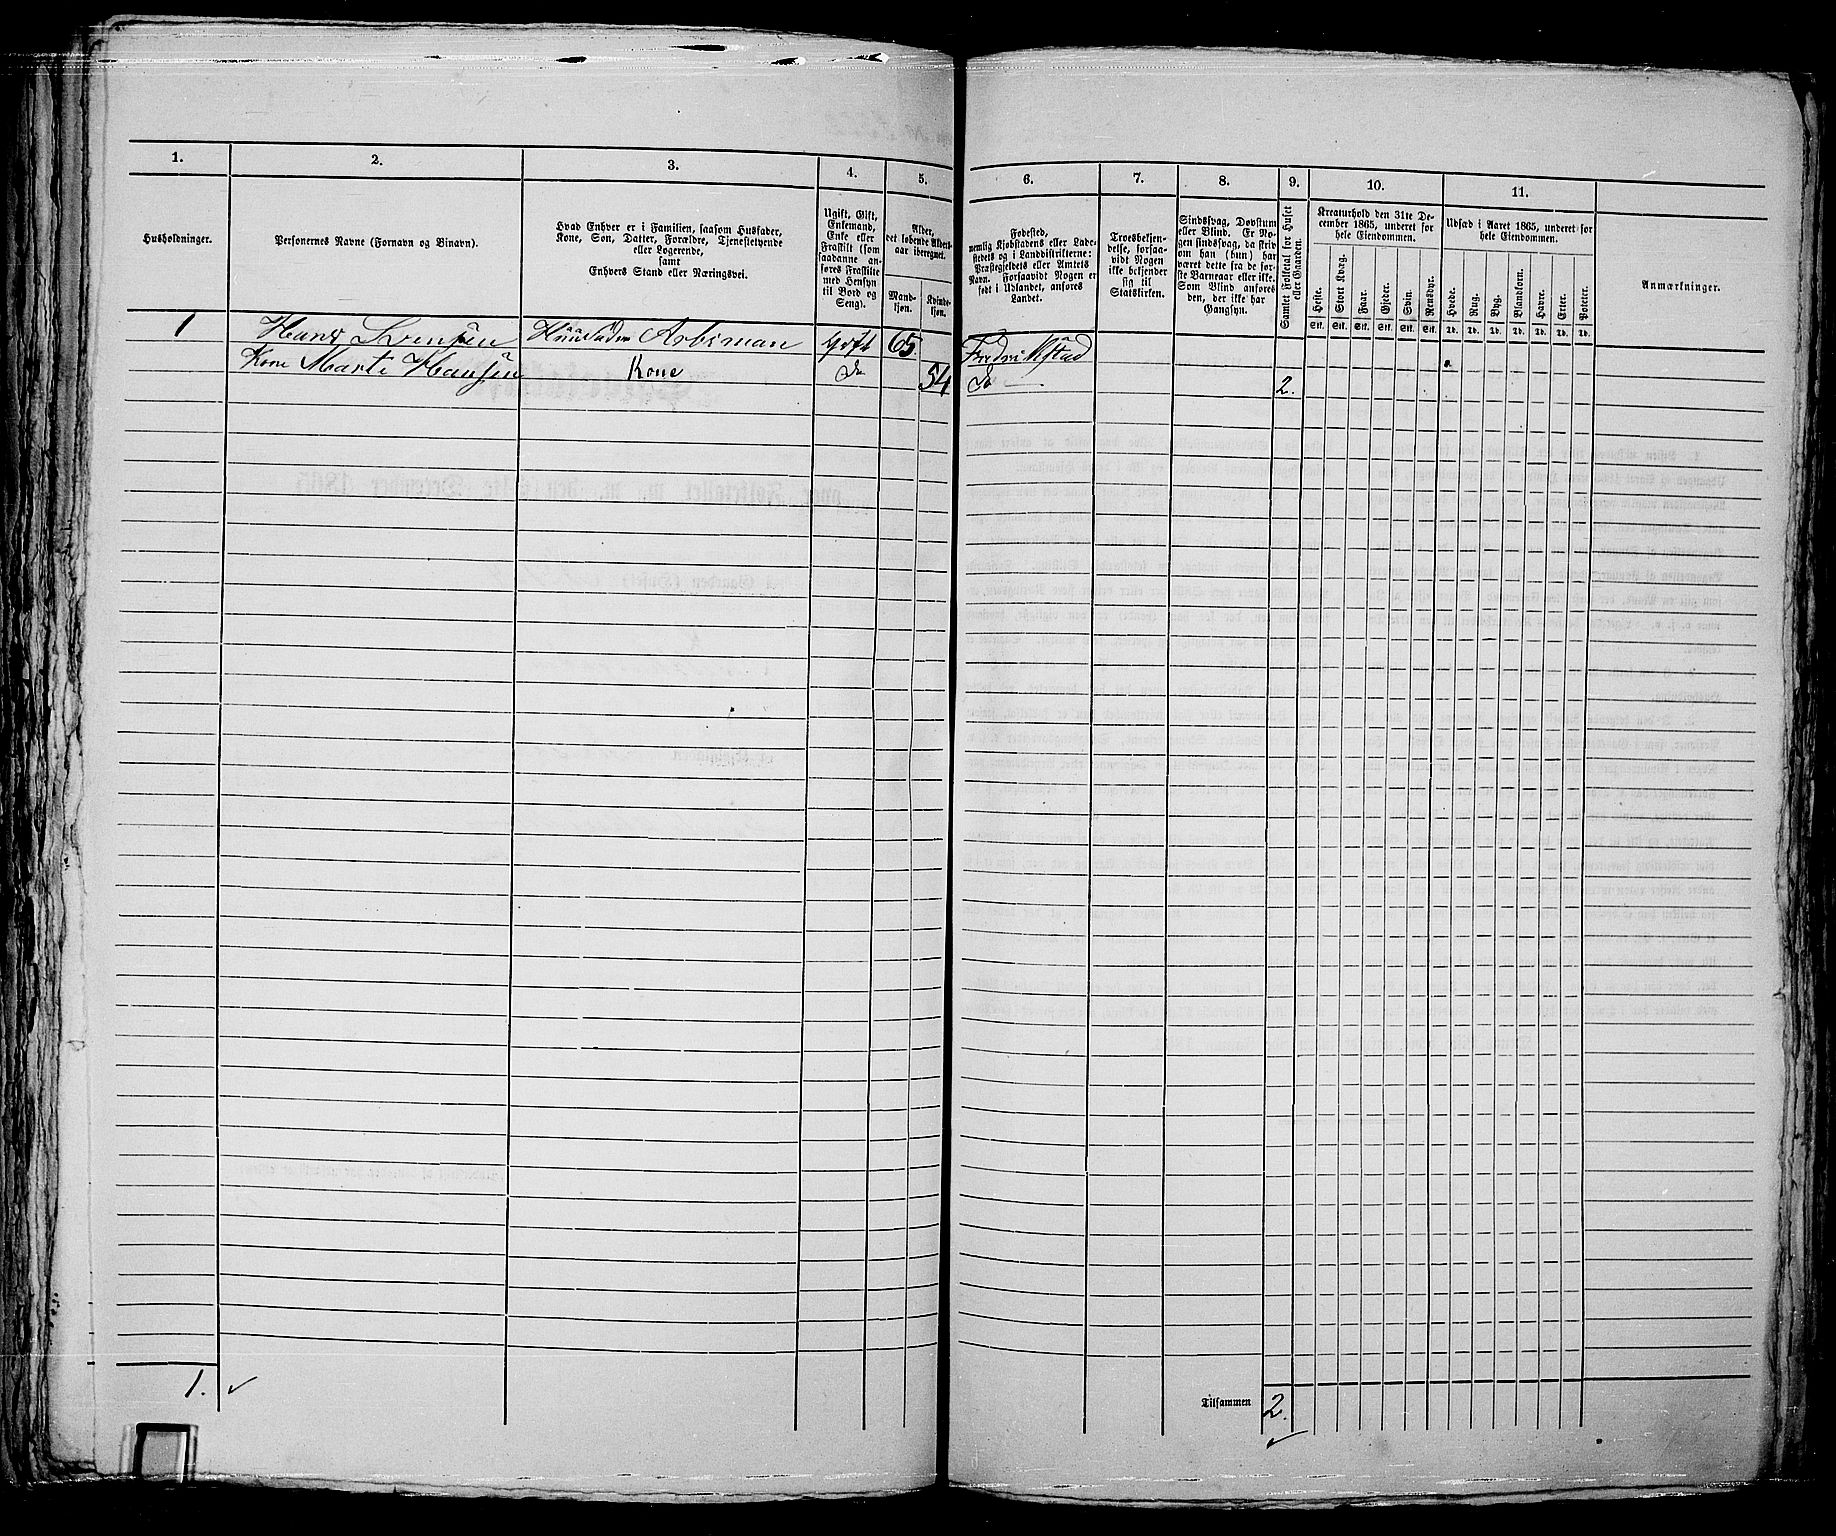 1.
2.
3.
4.
5.
6.
7.
8.
9.
10.
11.
Husholdninger.
Personernes Navne (Fornavn og Binavn).
Hvad Enhver er i Familien, saasom Husfader,
Kone, Søn, Datter, Forældre, Tjenestetyende
eller Logerende,
samt
Enhvers Stand eller Næringsvei.
Ugift, Gift,
Enkemand,
Enke eller
Fraskilt (som
saadanne an-
føres Fraskilte
med Hensyn
til Bord og
Seng).
Alder,
det løbende Alders-
aar iberegnet.
Mand-
kjøn.
Kvinde-
kjøn.
Fødested,
nemlig Kjøbstadens eller Lade-
stedets og i Landdistrikterne:
Præstegjeldets eller Amtets
Navn. Forsaavidt Nogen er
født i Udlandet, anføres
Landet.
Troesbekjen-
delse, forsaa-
vidt Nogen
ikke bekjender
sig til
Statskirken.
Sindssvag, Døvstum
eller Blind. Er No-
gen sindssvag, da skriv
om han (hun) har
været dette fra de før-
ste Barneaar eller ikke.
Som Blind anføres
den, der ikke har
Gangsyn.
Samlet Folketal for Huset
eller Gaarden.
Kreaturhold den 31te De-
cember 1865, underet for
hele Eiendommen.
Heste.
Stort Kvæg.
Faar.
Gjeder.
Svin.
Rensdyr.
Stk. Stk. Stk. Stk. Stk. Stk.
Udsæd i Aaret 1865, underet for
hele Eiendommen.
Hvede.
Rug.
Byg.
Blandkorn.
Havre.
Erter.
Poteter.
Td. Td. Td. Td. Td. Td. Td.
Anmærkninger.
1 Hans Svensen Huusfader Arbsman Gift 65. Fredrikstad
Kone Marte Hansen Kone do 54 do 2.
1.
Tilsammen 2.